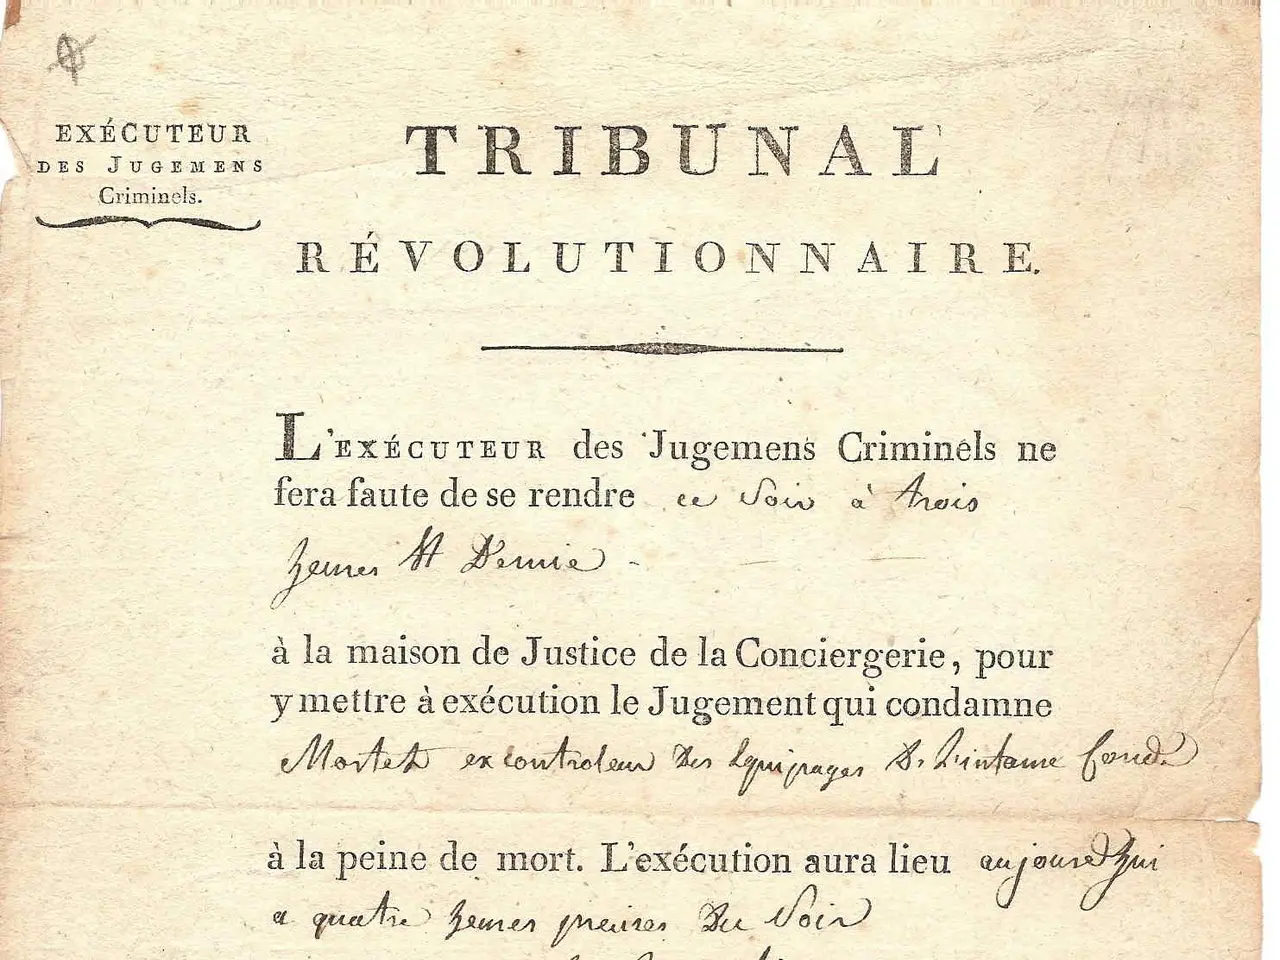 EXÉCUTEUR
DES JUGEMENS
Criminels.
TRIBUNAL
RÉVOLUTIONNAIRE.
L'EXÉCUTEUR des Jugemens Criminels ne
fera faute de se rendre ce Soir à trois
heures Et Demie
à la maison de Justice de la Conciergerie, pour
y mettre à exécution le Jugement qui condamne
ex controleur Des Equipages De L'infame Condé
à la peine de mort. L'exécution aura lieu aujourd'hui
a quatre heures precises Du Soir